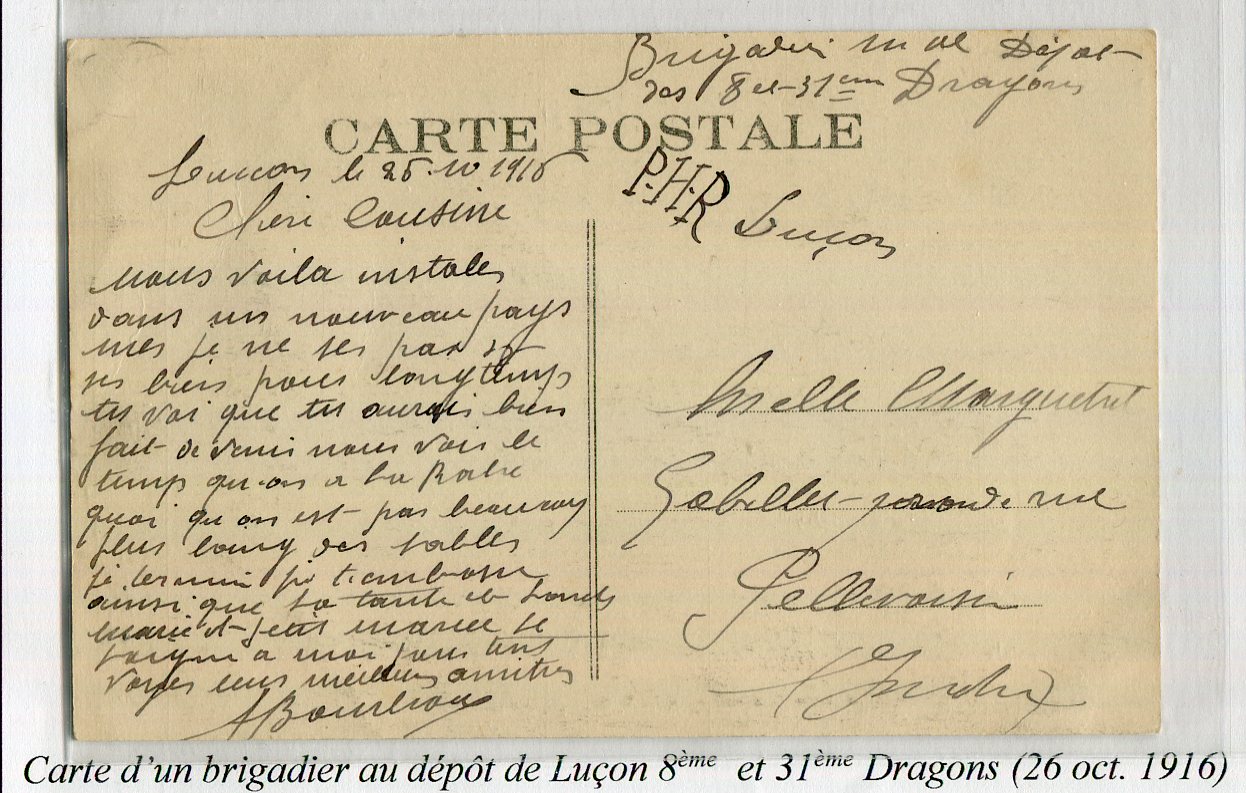 Brigadier au Dépot
des 8 et 31 em Dragons
CARTE POSTALE
P.H.R
Luçon
Lucon le 26.10 1916
Chere Cousine
nous voila instales
dans un nouveau pays
mes je ne ses pas si
ses bien pour longtemps
tu voi que tu aurais bien
fait de venir nous voir le
temps qu on a la
quoi qu on est pas beaucoup
plus loing des sables
je termin je t embrasse
ainsi que ta tante et Louis
Marie et petit
a moi pour tous
meilleurs amities
A Bourbon
Melle
grande rue
Pellevoisin
Indre
Carte d’un brigadier au dépôt de Luçon 8ème et 31ème Dragons (26 oct. 1916)